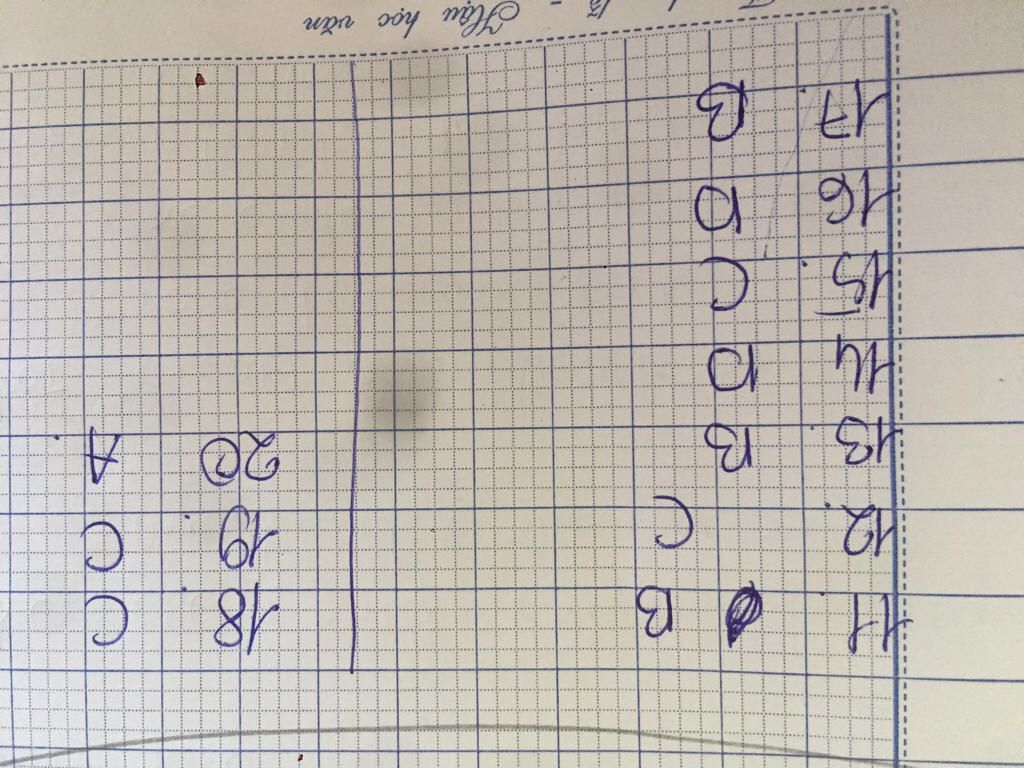 11. B
12. C
13. B
14 D
15. C
16 D
17. B
18. C
19. C
20 A.
lễ - Hậu học văn